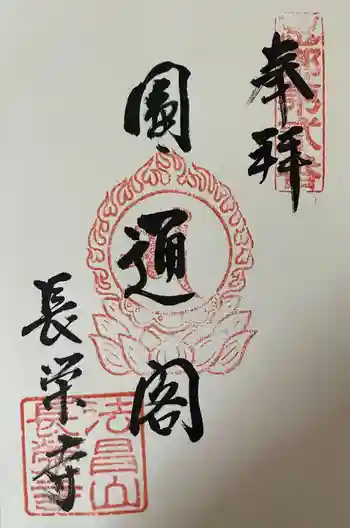 奉拝
圓通閣
長栄寺
法昌山
長榮寺